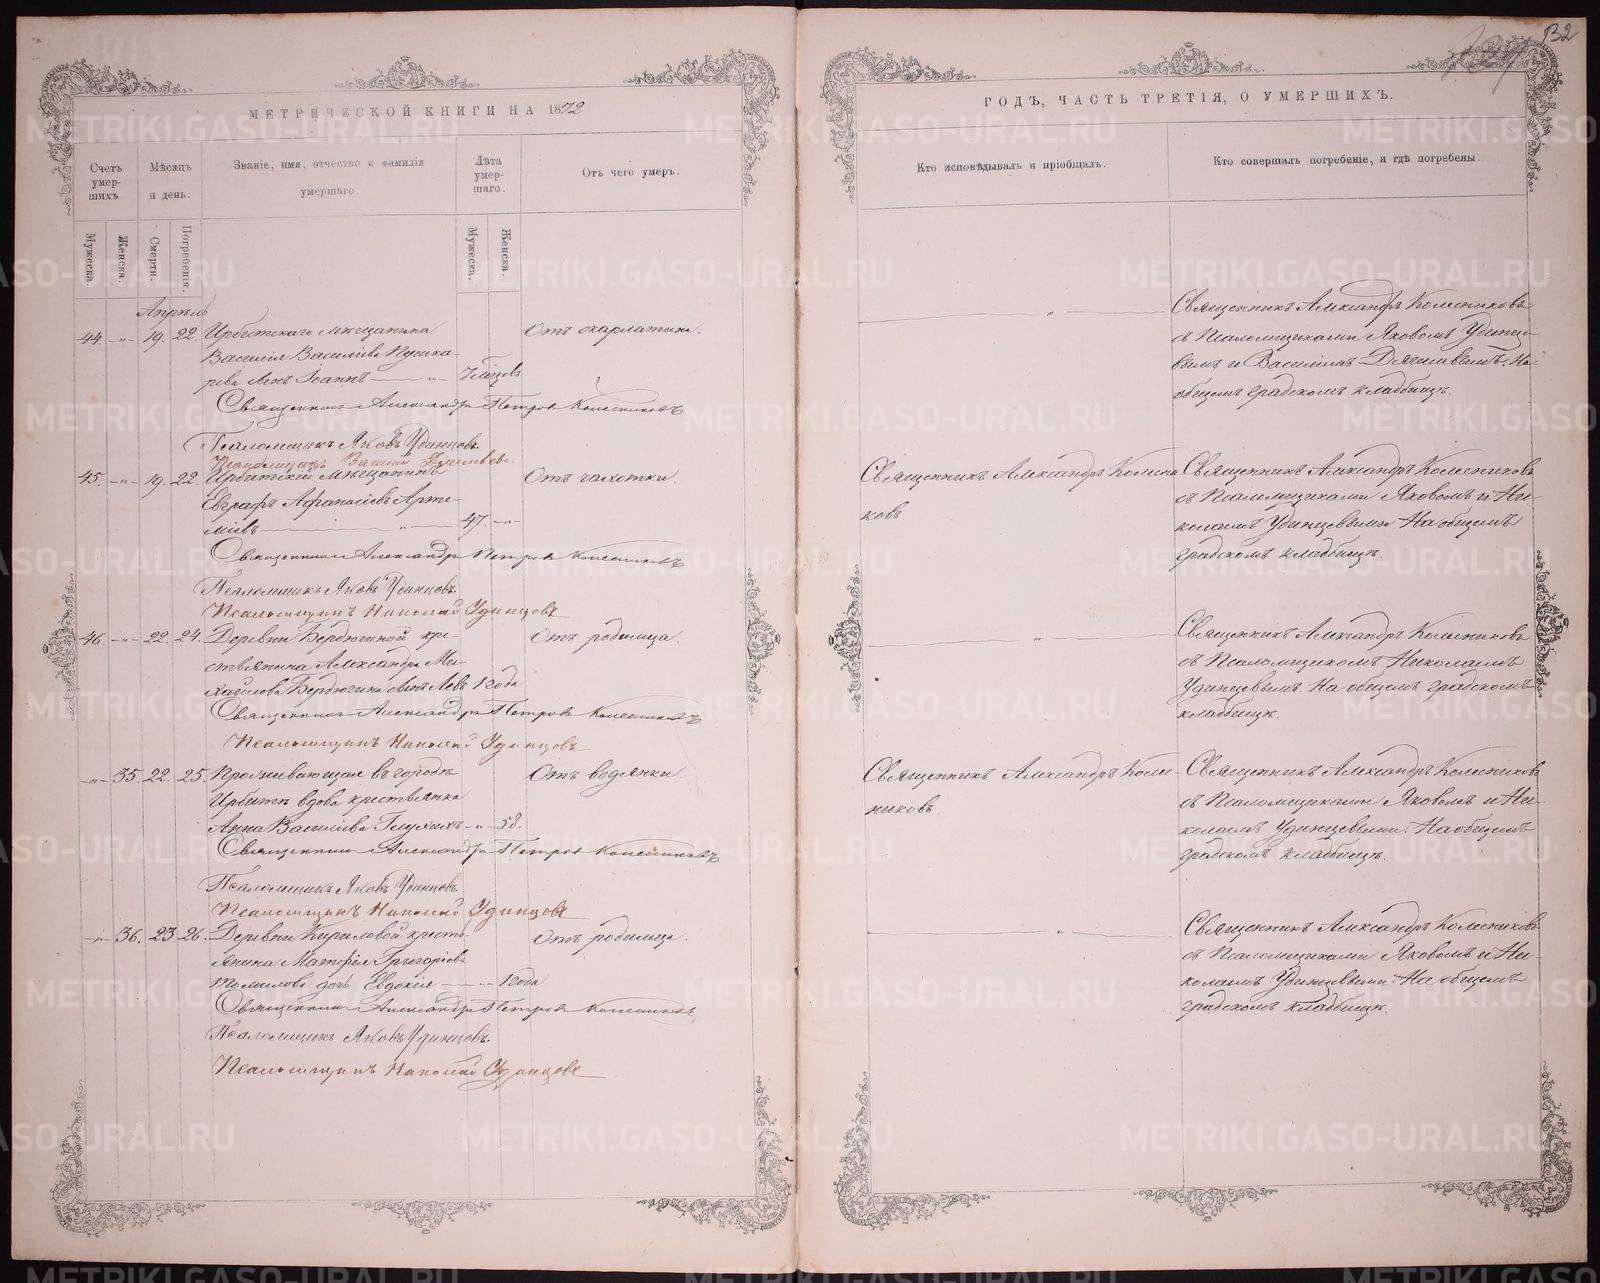 132
МЕТРИЧЕСКОЙ КНИГИ НА 1872
ГОДЪ, ЧАСТЬ ТРЕТІЯ, О УМЕРШИХЪ.
Счетъ умер-
шихъ
Мужеска.
Женска.
Мѣсяцъ
и день.
Смерти.
Погребенія.
Званіе, имя, отчество и фамилія
умершаго.
Лѣта
умер-
шаго.
Мужеска.
Женска.
Отъ чего умеръ.
Кто исповѣдывалъ и пріобщалъ.
Кто совершалъ погребеніе, и гдѣ погребены.
Апрѣль
44. -„- 19. 22 Ирбитскаго мѣщанина
Василія Васильева Пушка-
рева сынъ Іоаннъ -„- 7 мѣсяцевъ
Отъ скарлатины.
Священникъ Александръ Колесниковъ
съ Псаломщиками Яковомъ Удинце-
вымъ и Василіемъ Дягилевымъ. На
общемъ градскомъ кладбищѣ.
Священникъ Александръ Петровъ Колесниковъ
Псаломщикъ Яковъ Удинцовъ.
Псаломщикъ Василій Дягилевъ.
45. -„- 19. 22. Ирбитскій мѣщанинъ
Евграфъ Афанасіевъ Арте-
міевъ -„- 47. -„-
Отъ чахотки.
Священникъ Александръ Колесни
ковъ
Священникъ Александръ Колесниковъ
съ Псаломщиками Яковомъ и Ни-
колаемъ Удинцевыми. На общемъ
градскомъ кладбищѣ.
Священникъ Александръ Петровъ Колесниковъ
Псаломщикъ Яковъ Удинцовъ.
Псаломщикъ Николай Удинцовъ
46. -„- 22. 24. Деревни Бердюгиной кре-
стьянина Александра Ми-
хайлова Бердюгина сынъ Левъ 1 года
Отъ родимца.
-„-
Священникъ Александръ Колесниковъ
съ Псаломщикомъ Николаемъ
Удинцевымъ. На общемъ градскомъ
кладбищѣ.
Священникъ Александръ Петровъ Колесниковъ
Псаломщикъ Николай Удинцовъ
-„- 35. 22. 25. Проживающая въ городѣ
Ирбити вдова крестьянка
Анна Васильева Глухихъ -„- 58.
Отъ водянки
Священникъ Александръ Колес-
никовъ
Священникъ Александръ Колесниковъ
съ Псаломщиками Яковомъ и Ни-
колаемъ Удинцевыми. На общемъ
градскомъ кладбищѣ.
Священникъ Александръ Петровъ Колесниковъ
Псаломщикъ Яковъ Удинцовъ
Псаломщикъ Николай Удинцовъ
-„- 36. 23 26. Деревни Кириловой кресть-
янина Матфія Григоріева
Томилова дочь Евдокія -„- 1 года
Отъ родимца.
-„-
Священникъ Александръ Колесниковъ
съ Псаломщиками Яковомъ и Ни-
колаемъ Удинцевыми. На общемъ
градскомъ кладбищѣ.
Священникъ Александръ Петровъ Колесниковъ
Псаломщикъ Яковъ Удинцовъ.
Псаломщикъ Николай Удинцовъ
METRIKI.GASO-URAL.RU